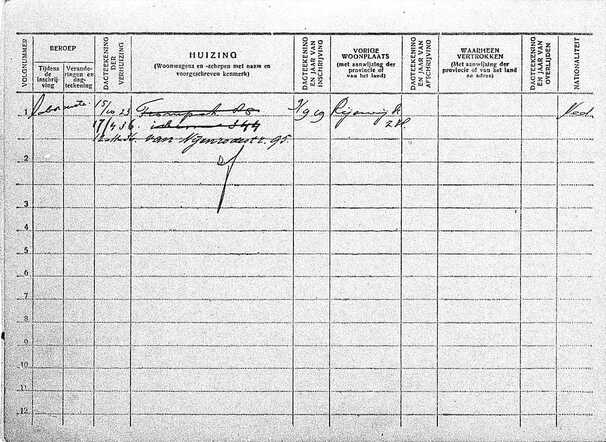 VOLGNUMMER
BEROEP
Tijdens de inschrijving
Veranderingen en dagteekening
DAGTEEKENING DER VERHUIZING
HUIZING
(Woonwagens en -schepen met naam en voorgeschreven kenmerk)
DAGTEEKENING EN JAAR VAN INSCHRIJVING
VORIGE WOONPLAATS
(met aanwijzing der provincie of van het land)
DAGTEEKENING EN JAAR VAN AFSCHRIJVING
WAARHEEN VERTROKKEN
(Met aanwijzing der provincie of van het land en adres)
DAGTEEKENING EN JAAR VAN OVERLIJDEN
NATIONALITEIT
1 15/ 23 Rijswijk Ned.
17/4 36. Z.H.
van Nijenrodestr. 95.
2
3
4
5
6
7
8
9
10
11
12